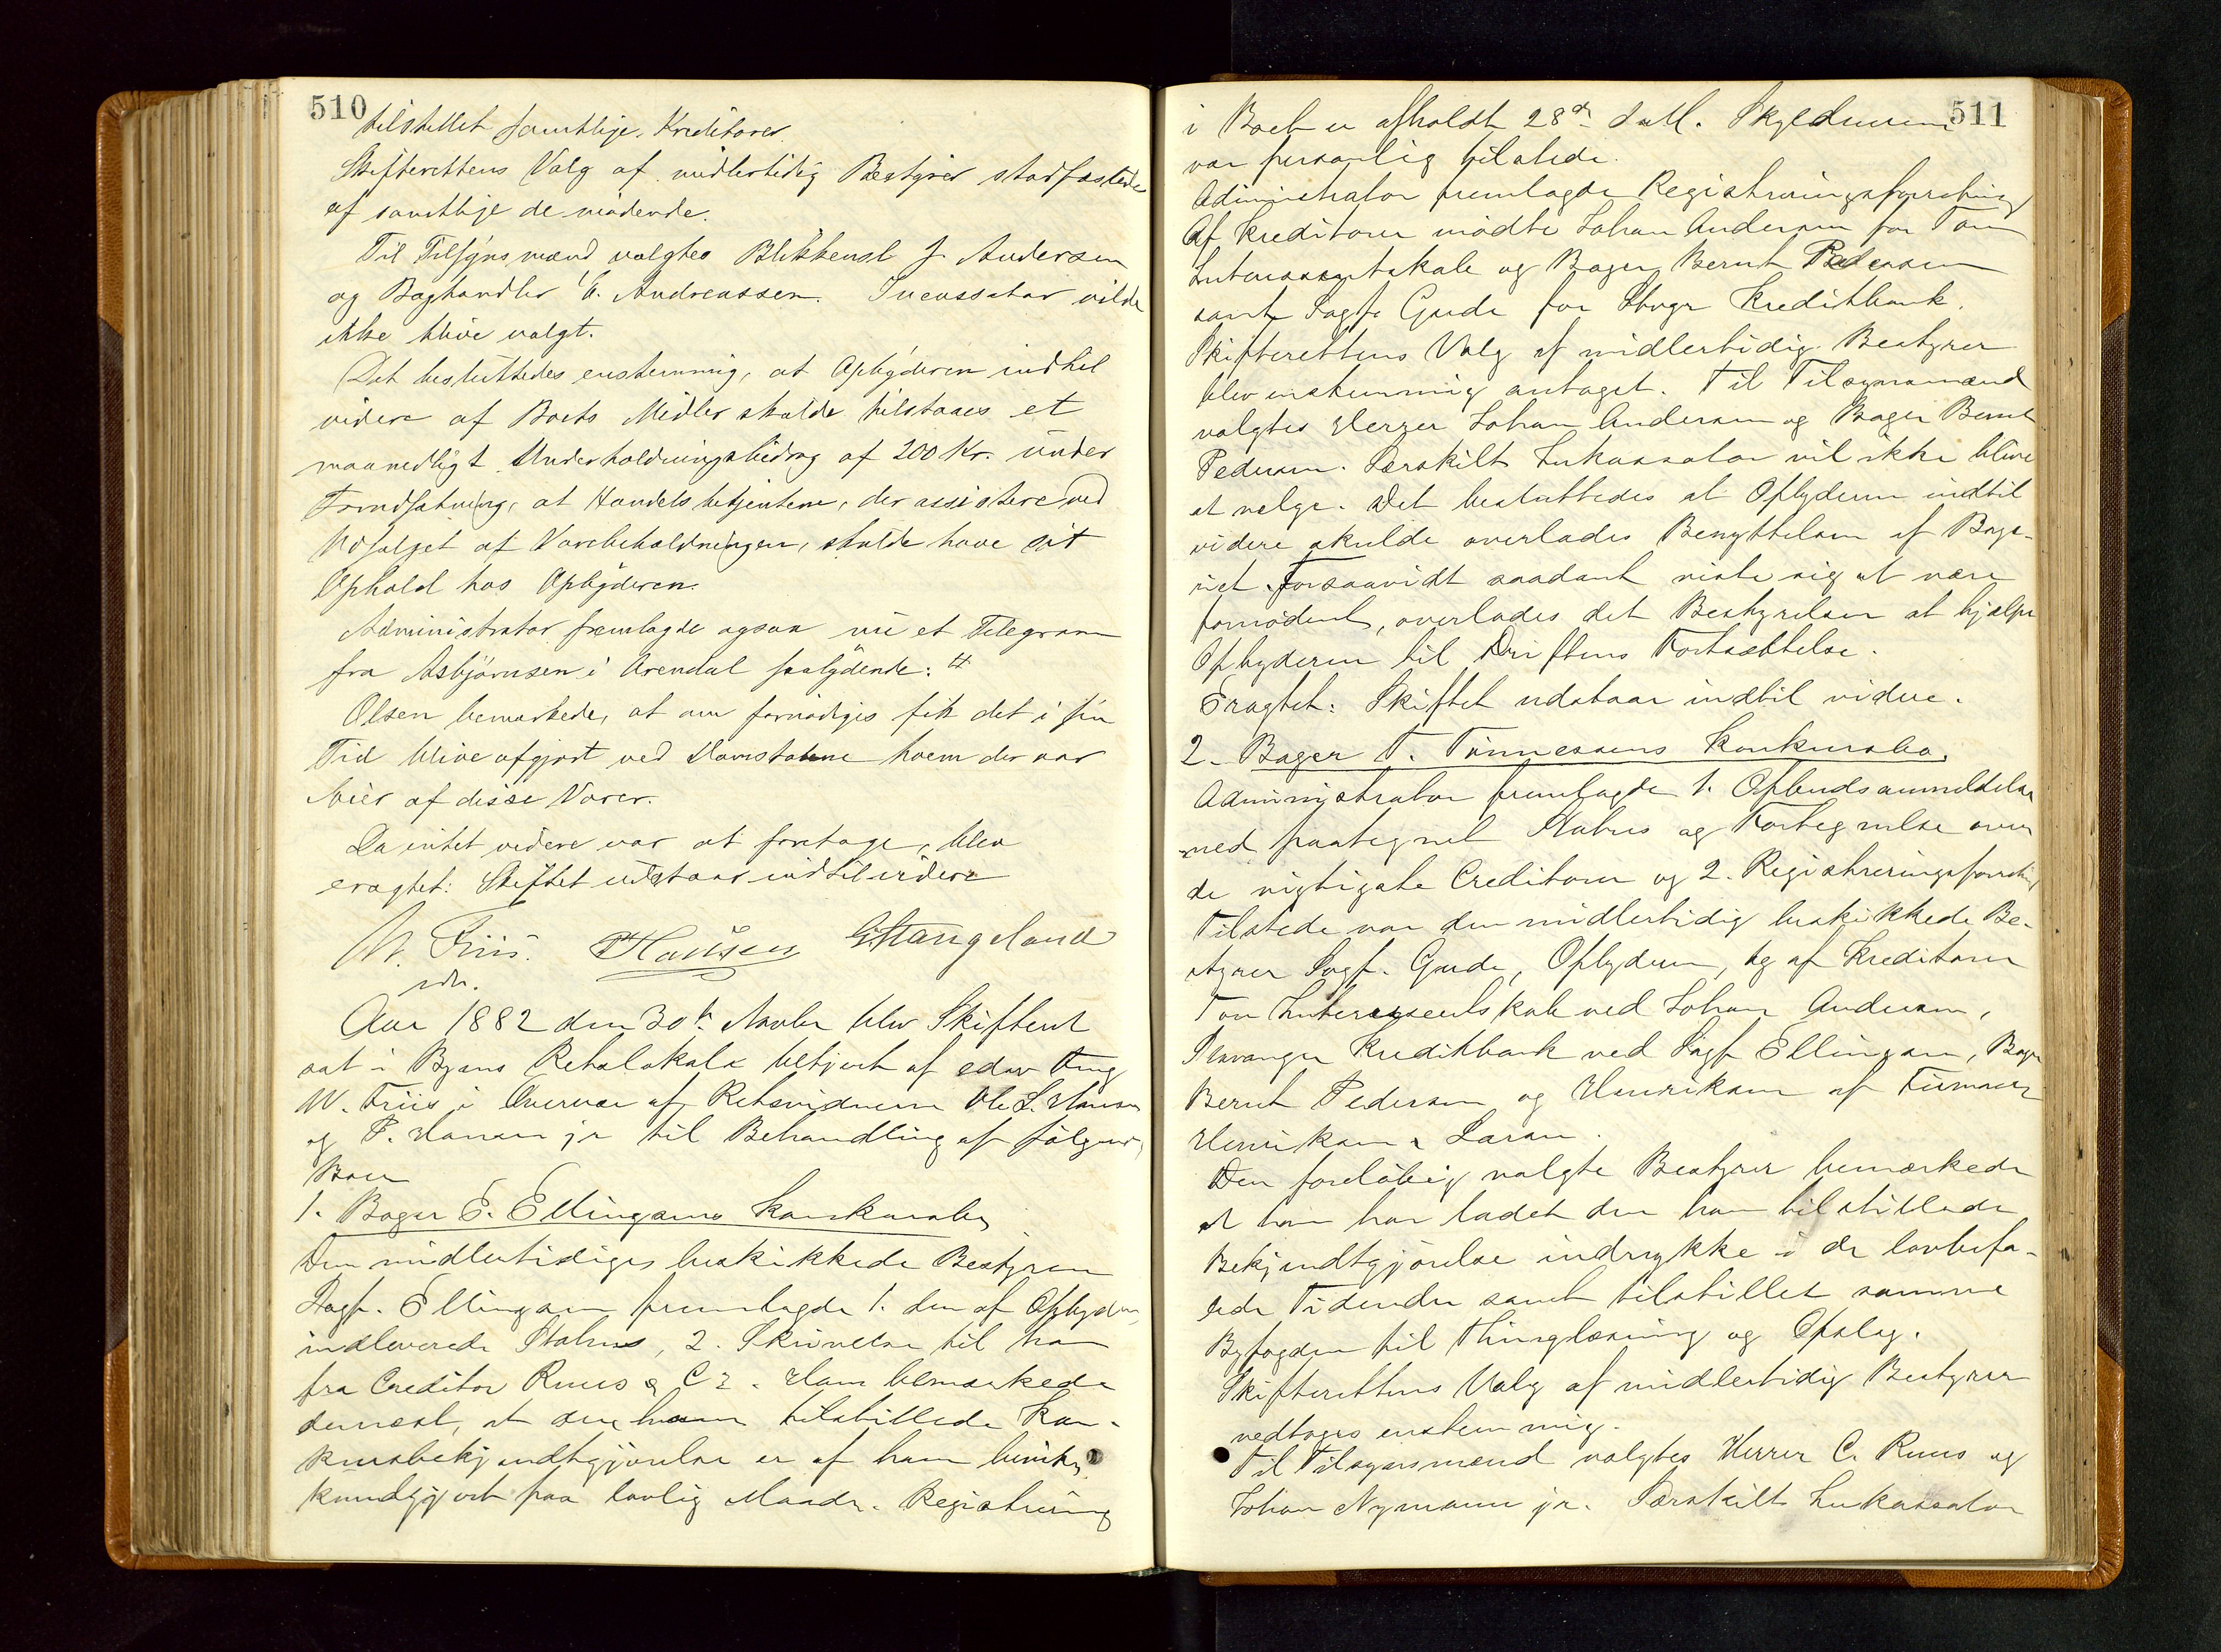 510
tilstillet samtlige Kreditorer.
Skifterettens Valg af midlertidig Bestyrer stadfæstedes
af samtlige de mödende.
Til Tilsynsmænd valgtes Blikkensl J. Andersen
og Boghandler C. Andreassen. Incassator vilde
ikke blive valgt.
Det besluttedes enstemmig, at Opbyderen indtil
videre af Boets Midler skulde tilstaaes et
maanedligt Underholdningsbidrag af 200 Kr. under
Forudsætning, at Handelsbetjentene, der assistere ved
Udsalget af Varebeholdningen, skulde have sit
Ophold hos Opbyderen.
Administrator fremlagde ogsaa nu et Telegram
fra Asbjörnsen i Arendal saalydende: #
Olsen bemærkede, at om fornödiges fik det i sin
Tid blive afgjort ved Domstolene hvem der var
Eier af disse Varer.
Da intet videre var at foretage, blev
eragtet: Skiftet udstaar indtil videre
W. Friis. PHansen GStangeland
edv.
Aar 1882 den 30te Novbr blev Skifteret
sat i Byens Retslokale betjent af edsv Fmg
W. Friis i Overvær af Retsvidnerne Ole L. Hansen
og P. Hansen jr til Behandling af fölgende
Boer
1. Bager E. Ellingsens Konkursbo
Den midlertidiges beskikkede Bestyrer
Sagf. Ellingsen fremlagde 1. den af Opbyderen
indleverede Status, 2. Skrivelse til ham
fra Creditor Ruus & Co. Han bemærkede
dernæst, at den ham tilstillede Kon-
kursbekjendtgjörelse er af ham
kundgjort paa lovlig Maade. Registrering
511
i Boet er afholdt 28de ds M. Skyldneren
var personlig tilstede.
Administrator fremlagde Registreringsforretning
Af Kreditorer mödte Johan Andersen for Tou
Interessentskab og Bager Bernt Pedersen
samt Sagf. Gude for Stvgr Kreditbank.
Skifterettens Valg af midlertidig Bestyrer
blev enstemmig antaget. Til Tilsynsmænd
valgtes Herrer Johan Andersen og Bager Bernt
Pedersen. Særskilt Inkassator vil ikke blive
at vælge. Det besluttedes at Opbyderen indtil
videre skulde overlades Benyttelsen af Bage-
riet. Forsaavidt saadant viste sig at være
fornödent, overlodes det Bestyrelsen at hjælpe
Opbyderen til Driftens Fortsættelse.
Eragtet: Skiftet udstaar indtil videre.
2. Bager T. Tönnessens Konkursbo.
Administrator fremlagde 1. Opbudsanmeldelse
med paategnet Status og Fortegnelse over
de vigtigste Creditorer og 2. Registreringsforretning
Tilstede var den midlertidig beskikkede Be-
styrer Sagf. Gude, Opbyderen, og af Kreditorer
Tou Interessentskab ved Johan Andersen,
Stavanger Kreditbank ved Sagf Ellingsen, Bager
Bernt Pedersen og Henriksen af Firmaet
Henriksen & Larsen.
Den foreløbig valgte Bestyrer bemærkede
at han har ladet den ham tilstillede
Bekjendtgjörelse indrykke i de lovbefa-
lede Tidender samt tilstillet samme
Byfogden til Thinglæsning og Opslag.
Skifterettens Valg af midlertidig Bestyrer
vedtoges enstemmig.
Til Tilsynsmænd valgtes Herrer C. Ruus og
Johan Nymann jr. Særskilt Inkassator